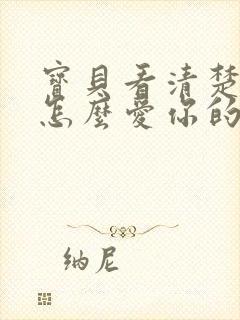 寶貝看清楚
怎麼愛你的
納尼